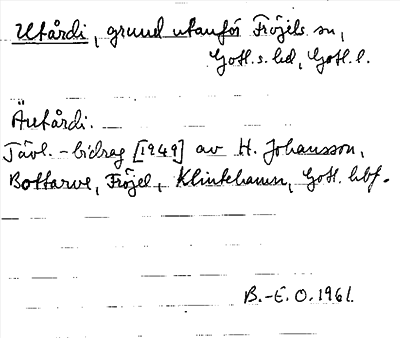 Utårdi, grund utanför Fröjels sn,
Gotl. s. hd, Gotl. l.
Äutårdi.
Tävl.-bidrag [1949] av H. Johansson,
Bottarve, Fröjel, Klintehamn, Gotl. hbf.
B.-E. O. 1961.